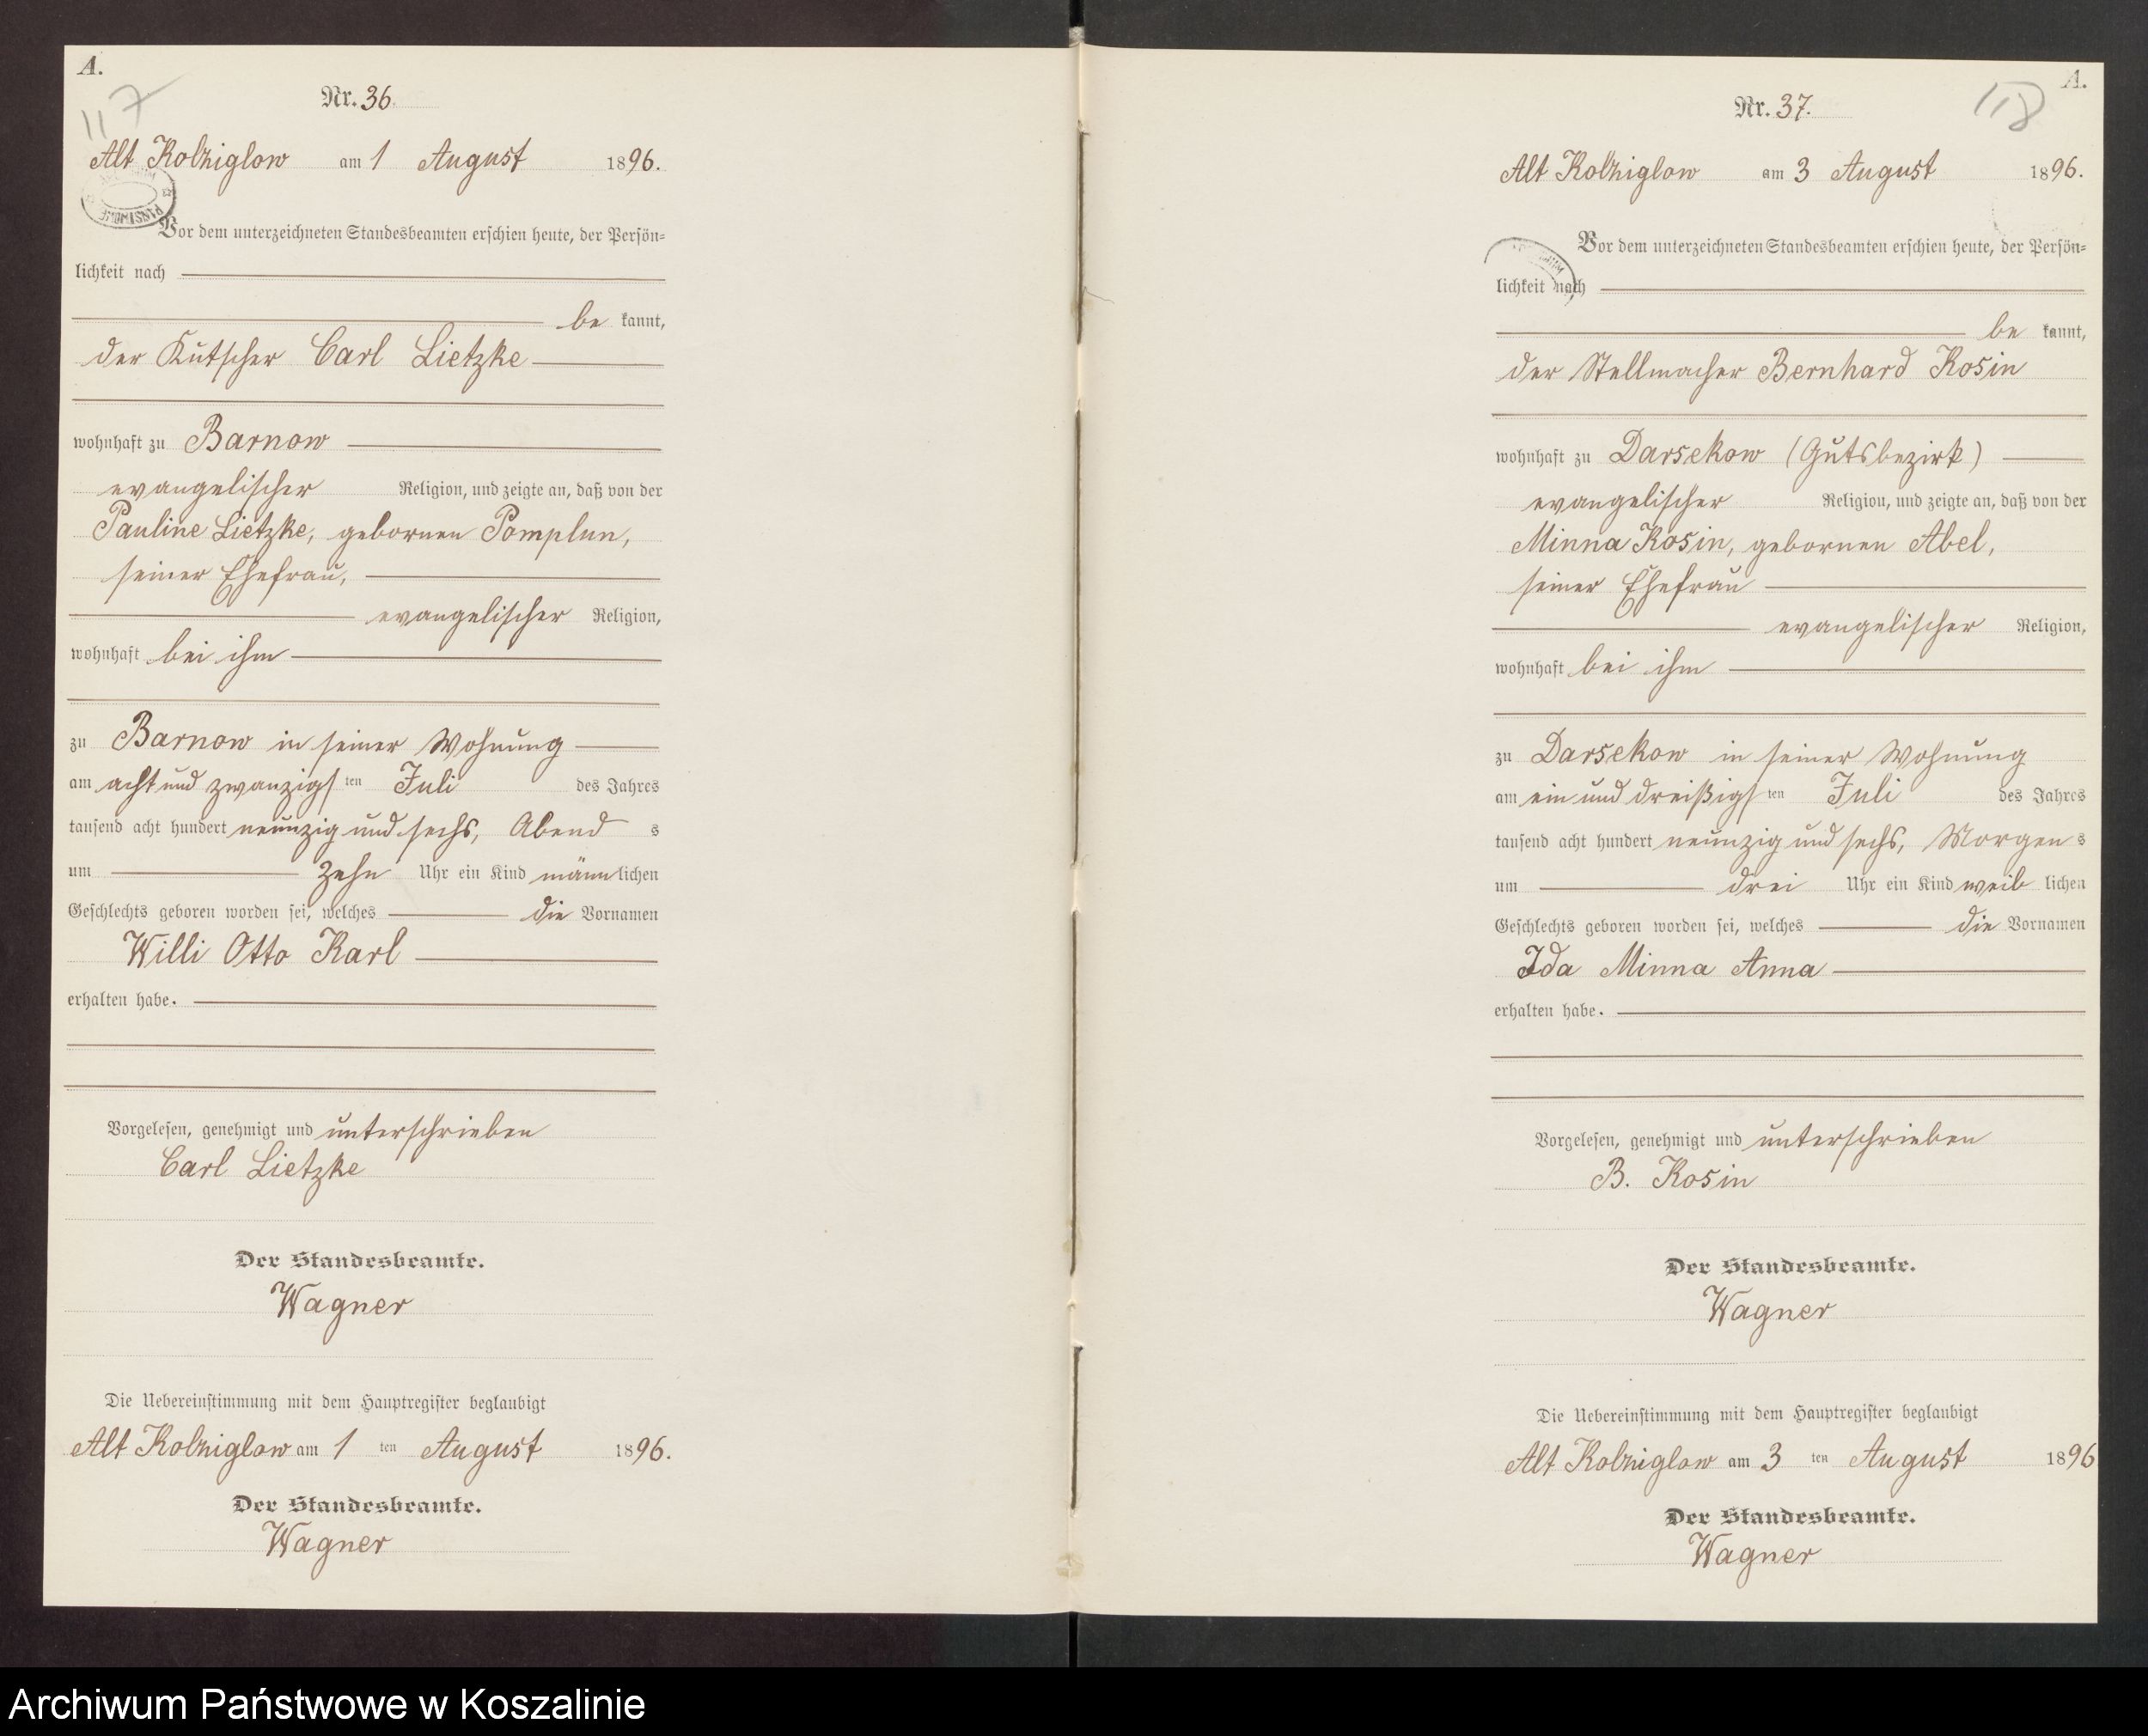 A.
117
Nr. 36.
Alt Kolziglow am 1 August 1896.
Vor dem unterzeichneten Standesbeamten erschien heute, der Persön-
lichkeit nach
be kannt,
der Kutscher Carl Lietzke
wohnhaft zu Barnow
evangelischer Religion, und zeigte an, daß von der
Pauline Lietzke, gebornen Pomplun,
seiner Ehefrau,
evangelischer Religion,
wohnhaft bei ihm
zu Barnow in seiner Wohnung
am acht und zwanzigsten Juli des Jahres
tausend acht hundert neunzig und sechs, Abend s
um zehn Uhr ein Kind männlichen
Geschlechts geboren worden sei, welches die Vornamen
Willi Otto Karl
erhalten habe.
Vorgelesen, genehmigt und unterschrieben
Carl Lietzke
Der Standesbeamte.
Wagner
Die Uebereinstimmung mit dem Hauptregister beglaubigt
Alt Kolziglow am 1 ten August 1896.
Der Standesbeamte.
Wagner
A.
118
Nr. 37.
Alt Kolziglow am 3 August 1896.
Vor dem unterzeichneten Standesbeamten erschien heute, der Persön-
lichkeit nach
be kannt,
der Stellmacher Bernhard Kosin
wohnhaft zu Darsekow (Gutsbezirk)
evangelischer Religion, und zeigte an, daß von der
Minna Kosin, gebornen Abel,
seiner Ehefrau
evangelischer Religion,
wohnhaft bei ihm
zu Darsekow in seiner Wohnung
am ein und dreißigsten Juli des Jahres
tausend acht hundert neunzig und sechs, Morgen s
um drei Uhr ein Kind weib lichen
Geschlechts geboren worden sei, welches die Vornamen
Ida Minna Anna
erhalten habe.
Vorgelesen, genehmigt und unterschrieben
B. Kosin
Der Standesbeamte.
Wagner
Die Uebereinstimmung mit dem Hauptregister beglaubigt
Alt Kolziglow am 3 ten August 1896
Der Standesbeamte.
Wagner
Archiwum Państwowe w Koszalinie